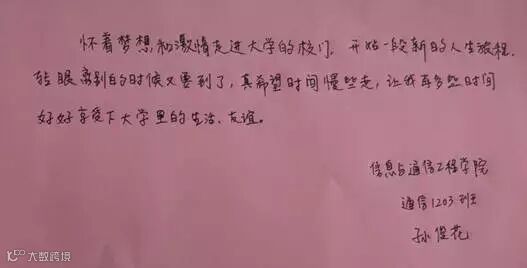 怀着梦想和激情走进大学的校门，开始一段新的人生旅程，
转眼离别的时候又要到了，真希望时间慢些走，让我再多些时间
好好享受下大学里的生活、友谊。
信息与通信工程学院
通信1203班
孙俊花
大数跨境